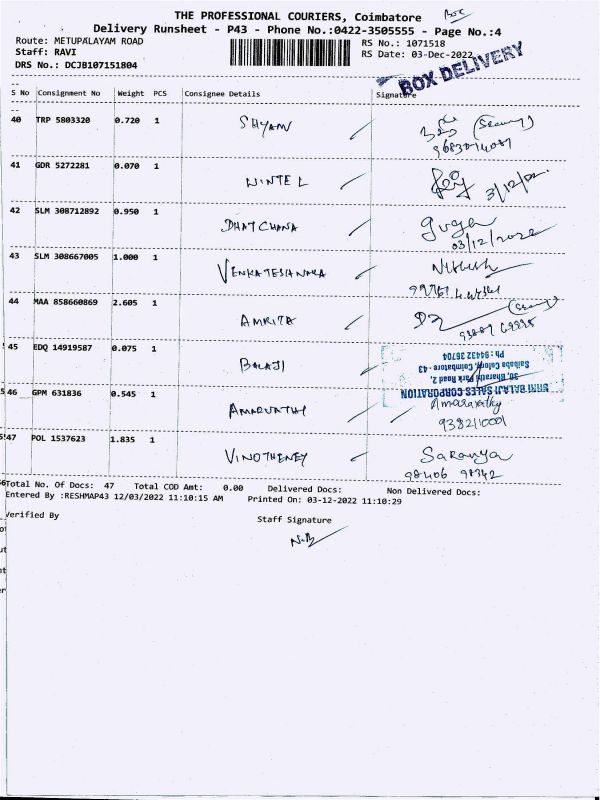 THE PROFESSIONAL COURIERS, Coimbatore
Box
Delivery Runsheet - P43 - Phone No.:0422-3505555 - Page No.:4
Route: METUPALAYAM ROAD
RS No.: 1071518
Staff: RAVI
RS Date: 03-Dec-2022
DRS No.: DCJB107151804
BOX DELIVERY
S No Consignment No Weight PCS Consignee Details Signature
40 TRP 5803320 0.720 1 SHYAM
41 GDR 5272281 0.070 1 WINTEL 3/12/22.
42 SLM 308712892 0.950 1 DHATCHANA
03/12/2022
43 SLM 308667005 1.000 1
44 MAA 858660869 2.605 1 AMRITA
45 EDQ 14919587 0.075 1 BALAJI
SHRI BALAJI SALES CORPORATION
30, Bharathi Park Road 2,
Saibaba Colony, Coimbatore - 43
Ph : 94432 36704
46 GPM 631836 0.545 1
9382110001
47 POL 1537623 1.835 1 VINOTHENEY Saranya
98406 98342
Total No. Of Docs: 47 Total COD Amt: 0.00 Delivered Docs: Non Delivered Docs:
Entered By :RESHMAP43 12/03/2022 11:10:15 AM Printed On: 03-12-2022 11:10:29
Verified By
Staff Signature